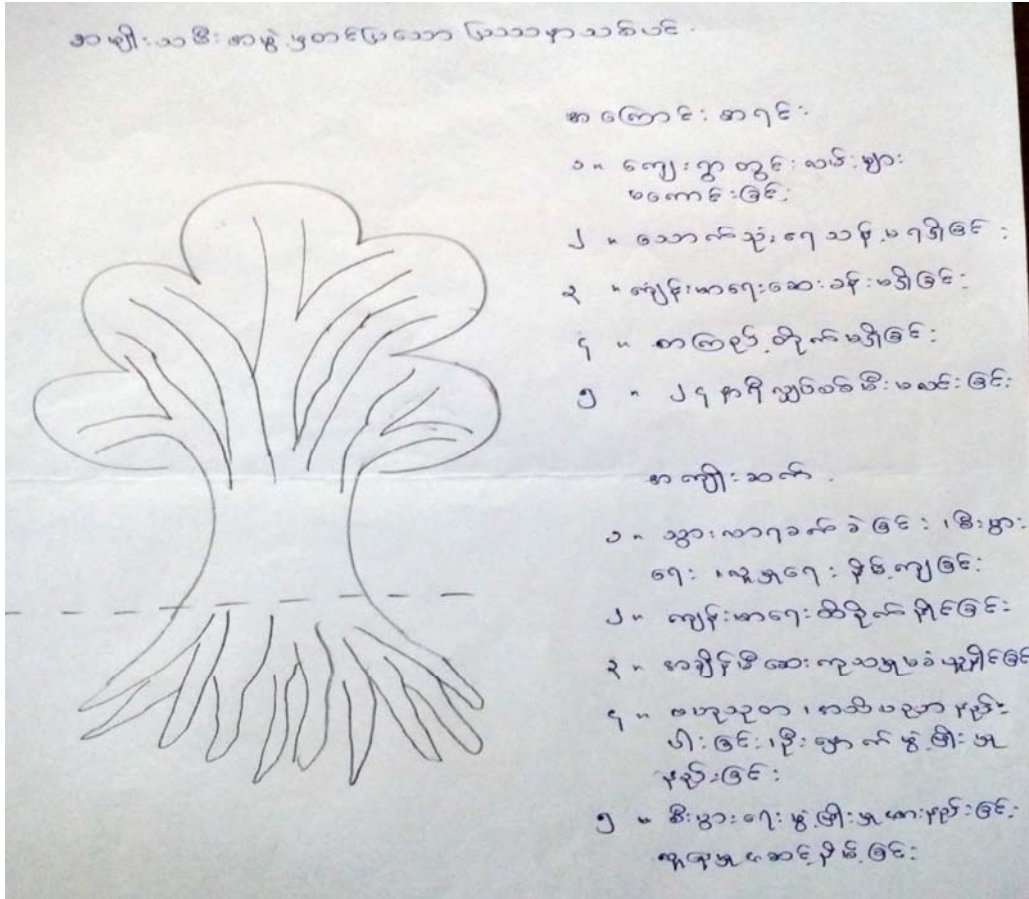 အမျိုးသမီးအဖွဲ့မှတင်ပြသော ပြဿနာသစ်ပင်.
အကြောင်းအရင်း
၁။ ကျေးရွာတွင်းလမ်းများ
မကောင်းခြင်း
၂။ သောက်သုံးရေသန့်မရရှိခြင်း
၃။ ကျန်းမာရေးဆေးခန်းမရှိခြင်း
၄။ စာကြည့်တိုက်မရှိခြင်း
၅။ ၂၄ နာရီလျှပ်စစ်မီးမလင်းခြင်း
အကျိုးဆက်.
၁။ သွားလာရခက်ခဲခြင်း၊ စီးပွား
ရေး၊ လူမှုရေး နိမ့်ကျခြင်း
၂။ ကျန်းမာရေးထိခိုက်နိုင်ခြင်း
၃။ အချိန်မီဆေးကုသမှုမခံယူနိုင်ခြင်
၄။ ဗဟုသုတ၊ အသိပညာနည်း
ပါးခြင်း၊ ဦးနှောက်ဖွံ့ဖြိုးမှု
နည်းခြင်း
၅။ စီးပွားရေးဖွံ့ဖြိုးမှုအားနည်းခြင်း
လူနေမှုအဆင့်နိမ့်ခြင်း